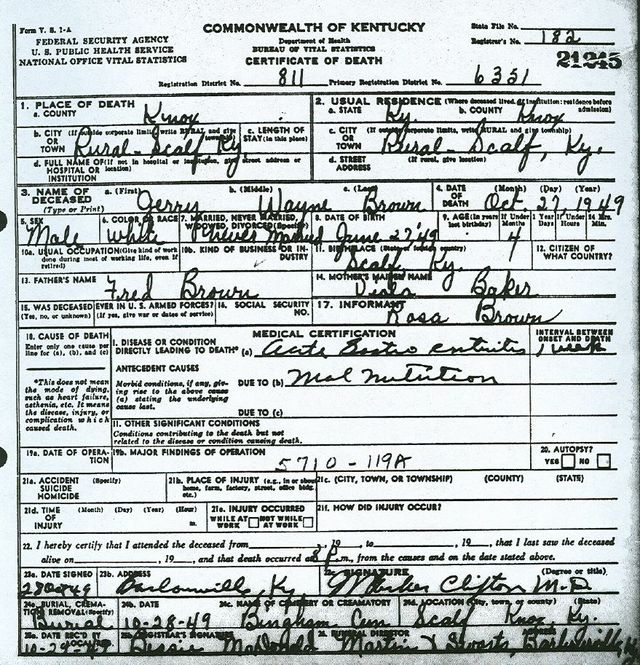 Form V. S. 1-A
COMMONWEALTH OF KENTUCKY
State File No.
FEDERAL SECURITY AGENCY
Department of Health
Registrar's No. 182
U. S. PUBLIC HEALTH SERVICE
BUREAU OF VITAL STATISTICS
NATIONAL OFFICE VITAL STATISTICS
CERTIFICATE OF DEATH
21345
Registration District No. 811 Primary Registration District No. 6351
1. PLACE OF DEATH
a. COUNTY Knox
2. USUAL RESIDENCE (Where deceased lived. If institution: residence before admission)
a. STATE Ky. b. COUNTY Knox
b. CITY OR TOWN (If outside corporate limits, write RURAL and give township) Rural-Scalf Ky
c. LENGTH OF STAY (in this place)
c. CITY OR TOWN (If outside corporate limits, write RURAL and give township) Rural-Scalf, Ky.
d. FULL NAME OF HOSPITAL OR INSTITUTION (If not in hospital or institution, give street address or location)
d. STREET ADDRESS (If rural, give location)
3. NAME OF DECEASED (Type or Print)
a. (First) Jerry b. (Middle) Wayne c. (Last) Brown
4. DATE OF DEATH (Month) (Day) (Year) Oct 27, 1949
5. SEX Male
6. COLOR OR RACE White
7. MARRIED, NEVER MARRIED, WIDOWED, DIVORCED (Specify) Never Married
8. DATE OF BIRTH June 27 '49
9. AGE (In years last birthday) If Under 1 Year Months 4 Days If Under 24 Hrs. Hours Min.
10a. USUAL OCCUPATION (Give kind of work done during most of working life, even if retired)
10b. KIND OF BUSINESS OR INDUSTRY
11. BIRTHPLACE (State or foreign country) Scalf Ky.
12. CITIZEN OF WHAT COUNTRY?
13. FATHER'S NAME Fred Brown
14. MOTHER'S MAIDEN NAME Baker
15. WAS DECEASED EVER IN U. S. ARMED FORCES? (Yes, no, or unknown) (If yes, give war or dates of service)
16. SOCIAL SECURITY NO.
17. INFORMANT Rosa Brown
18. CAUSE OF DEATH
Enter only one cause per line for (a), (b), and (c)
*This does not mean the mode of dying, such as heart failure, asthenia, etc. It means the disease, injury, or complication which caused death.
MEDICAL CERTIFICATION
INTERVAL BETWEEN ONSET AND DEATH
I. DISEASE OR CONDITION DIRECTLY LEADING TO DEATH* (a) Acute Gastro enteritis 1 week
ANTECEDENT CAUSES
Morbid conditions, if any, giving rise to the above cause (a) stating the underlying cause last.
DUE TO (b) Mal nutrition
DUE TO (c)
II. OTHER SIGNIFICANT CONDITIONS
Conditions contributing to the death but not related to the disease or condition causing death.
19a. DATE OF OPERATION
19b. MAJOR FINDINGS OF OPERATION
5710-119A
20. AUTOPSY? YES NO
21a. ACCIDENT SUICIDE HOMICIDE (Specify)
21b. PLACE OF INJURY (e.g., in or about home, farm, factory, street, office bldg. etc.)
21c. (CITY, TOWN, OR TOWNSHIP) (COUNTY) (STATE)
21d. TIME OF INJURY (Month) (Day) (Year) (Hour) m.
21e. INJURY OCCURRED WHILE AT WORK NOT WHILE AT WORK
21f. HOW DID INJURY OCCUR?
22. I hereby certify that I attended the deceased from , 19 to , 19 , that I last saw the deceased
alive on , 19 , and that death occurred at 8 P m., from the causes and on the date stated above.
23a. DATE SIGNED
23b. ADDRESS Barbourville, Ky.
23c. SIGNATURE (Degree or title) Clifton M.D.
24a. BURIAL, CREMATION REMOVAL (Specify) Burial
24b. DATE 10-28-49
24c. NAME OF CEMETERY OR CREMATORY Bingham Cem
24d. LOCATION (City, town, or county) (State) Scalf Knox, Ky.
25a. DATE REC'D BY 10-29-49
25b. REGISTRAR'S SIGNATURE Bessie McDonald
26. FUNERAL DIRECTOR Martin Barbourville